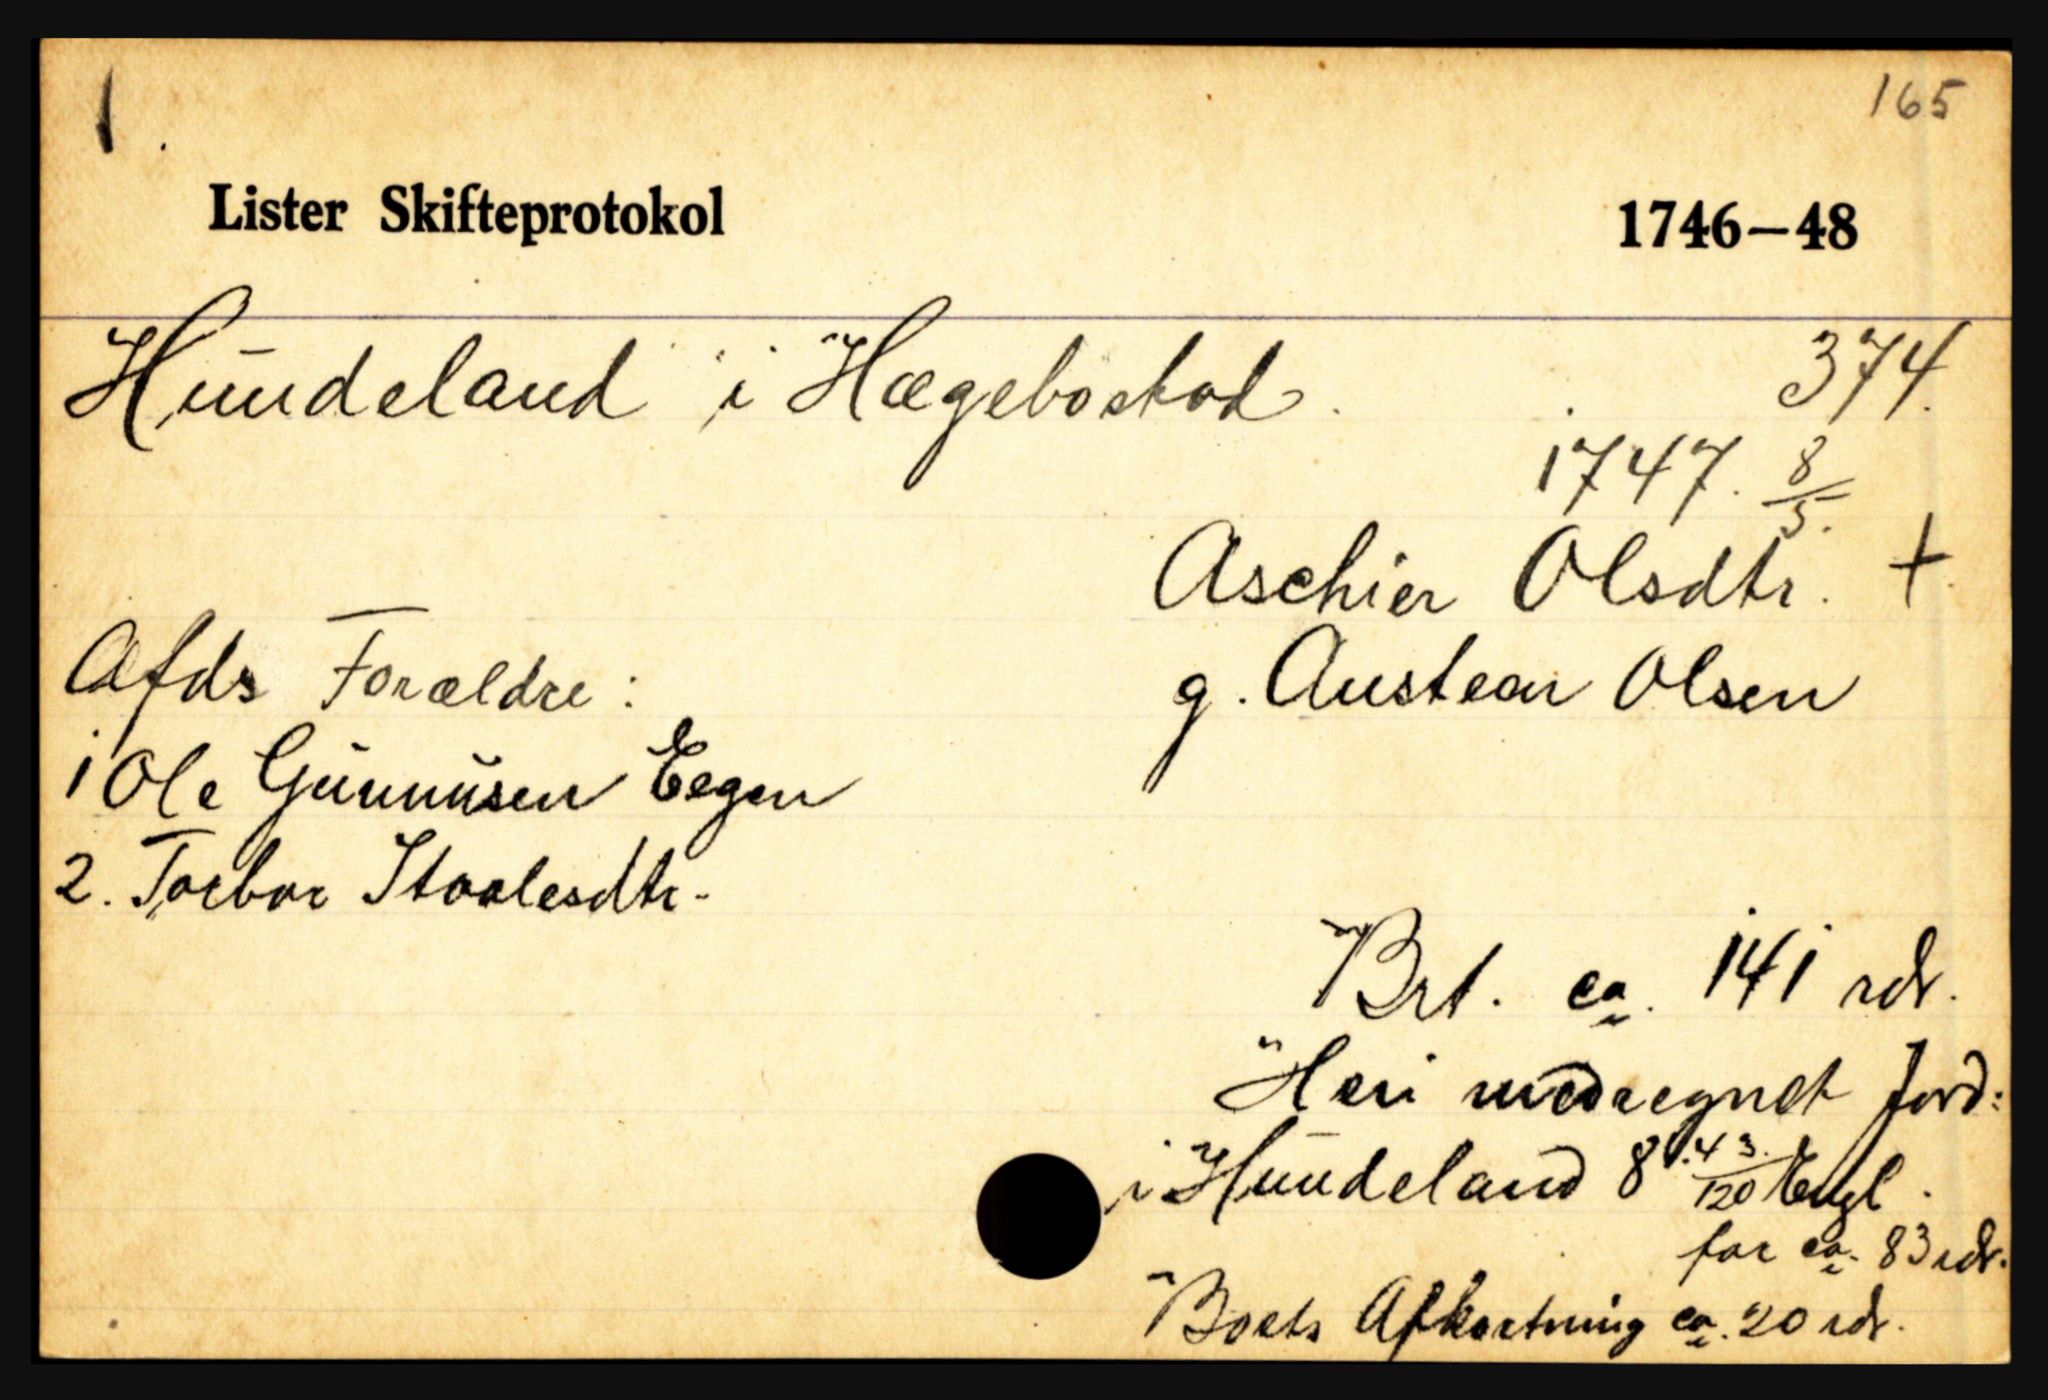 1. 165
Lister Skifteprotokol 1746–48
Hundeland i Hægebostad. 374.
1747. 8/5.
Aschier Olsdtr. +
Afds Forældre: g. Austean Olsen
1 Ole Gunnusen Eegen
2. Torbor Staalesdtr.
Brt. ca. 141 rdr.
Heri medregnet Jord:
i Hundeland 8 43/120 Engl.
for ca. 83 rdr.
Boets Afkortning ca. 20 rdr.